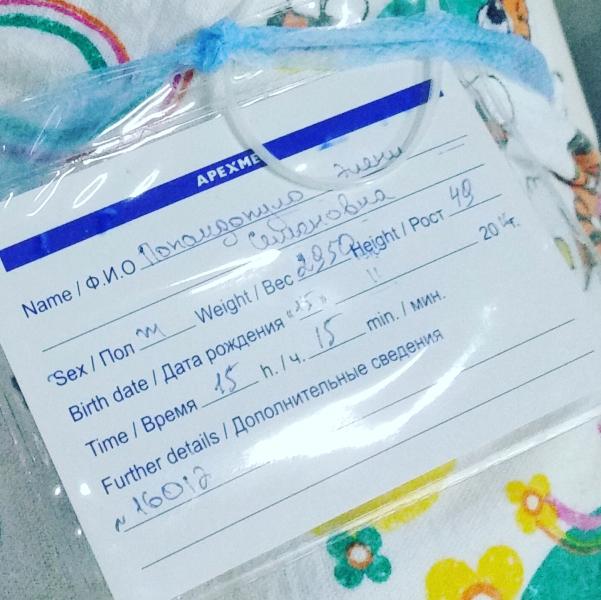 APEXME
Name / Ф.И.О
Степановна
Sex / Пол m Weight / Вес 2950 Height / Рост 49
Birth date / Дата рождения "15" 11 2014г.
Time / Время 15 h. / ч. 15 min. / мин.
Further details / Дополнительные сведения
№16012